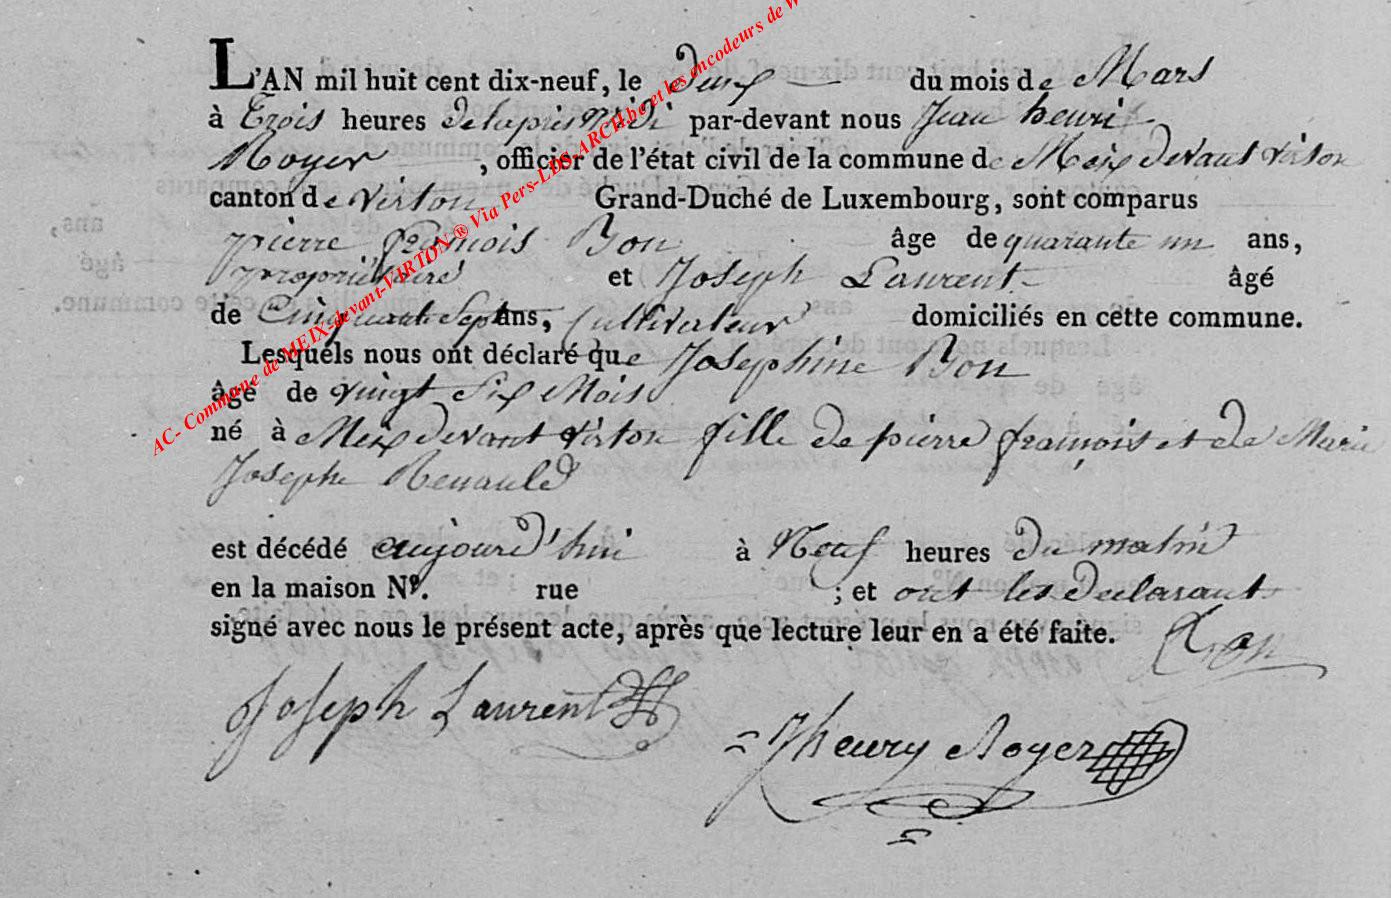 L'AN mil huit cent dix-neuf, le deux du mois de Mars
à Trois heures delapres Midi par-devant nous Jean henri
Royer, officier de l'état civil de la commune de Meix devant virton
canton de virton Grand-Duché de Luxembourg, sont comparus
pierre francois Bon âge de quarante un ans,
propriétaire et Joseph Laurent âgé
de Cinquante Sept ans, Cultivateur domiciliés en cette commune.
Lesquels nous ont déclaré que Josephine Bon
âge de vingt Six Mois
né à Meix devant virton fille de pierre françois et de Marie
Joseph Renauld
est décédé aujourd'hui à Neuf heures du matin
en la maison Nº. rue ; et ont les declarant
signé avec nous le présent acte, après que lecture leur en a été faite.
Bon
Joseph Laurent
Jhenry Royer
AC- Commune de MEIX-devant-VIRTON ® Via Pers-LDS-ARCH.be et les encodeurs de